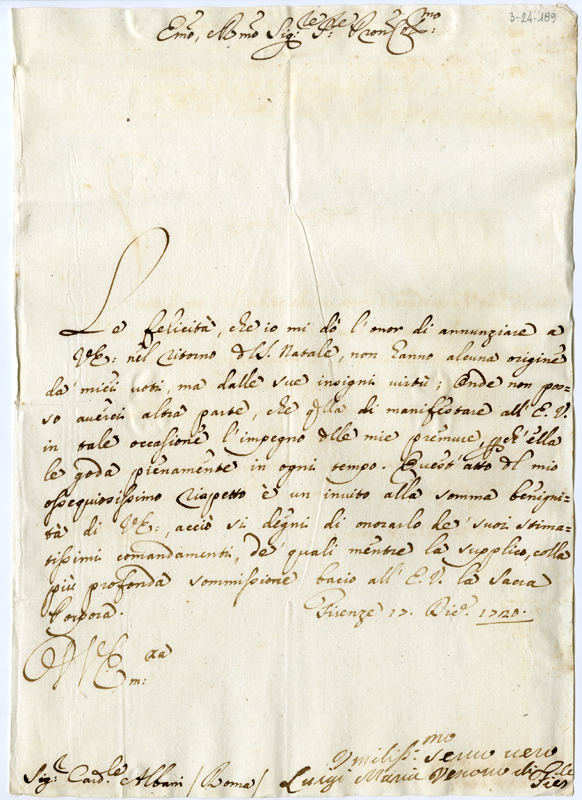 3-24-189
Emo, e Rmo Sig.re P.re Pron Colmo:
Le felicità, che io mi dò l'onor di annunziare a
V.E: nel ritorno del S. Natale, non hanno alcuna origine
da' miei voti, ma dalle sue insigni virtù; Onde non pos-
so averci altra parte, che qlla di manifestare all'E.V.
in tale occasione l'impegno delle mie premure, pch'ella
le goda pienamente in ogni tempo. Quest'atto del mio
ossequiosissimo rispetto è un invito alla somma benigni-
tà di V.E:, acciò si degni di onorarlo de' suoi stima-
tissimi comandamenti, de' quali mentre la supplico, colla
più profonda sommissione bacio all'E.V. la Sacra
Porpora.
Firenze 17. Dice. 1720.
D V E
ma:
Umiliss:mo servo vero
Sig.r Card.le Albani / Roma /
Luigi Maria Vescovo di